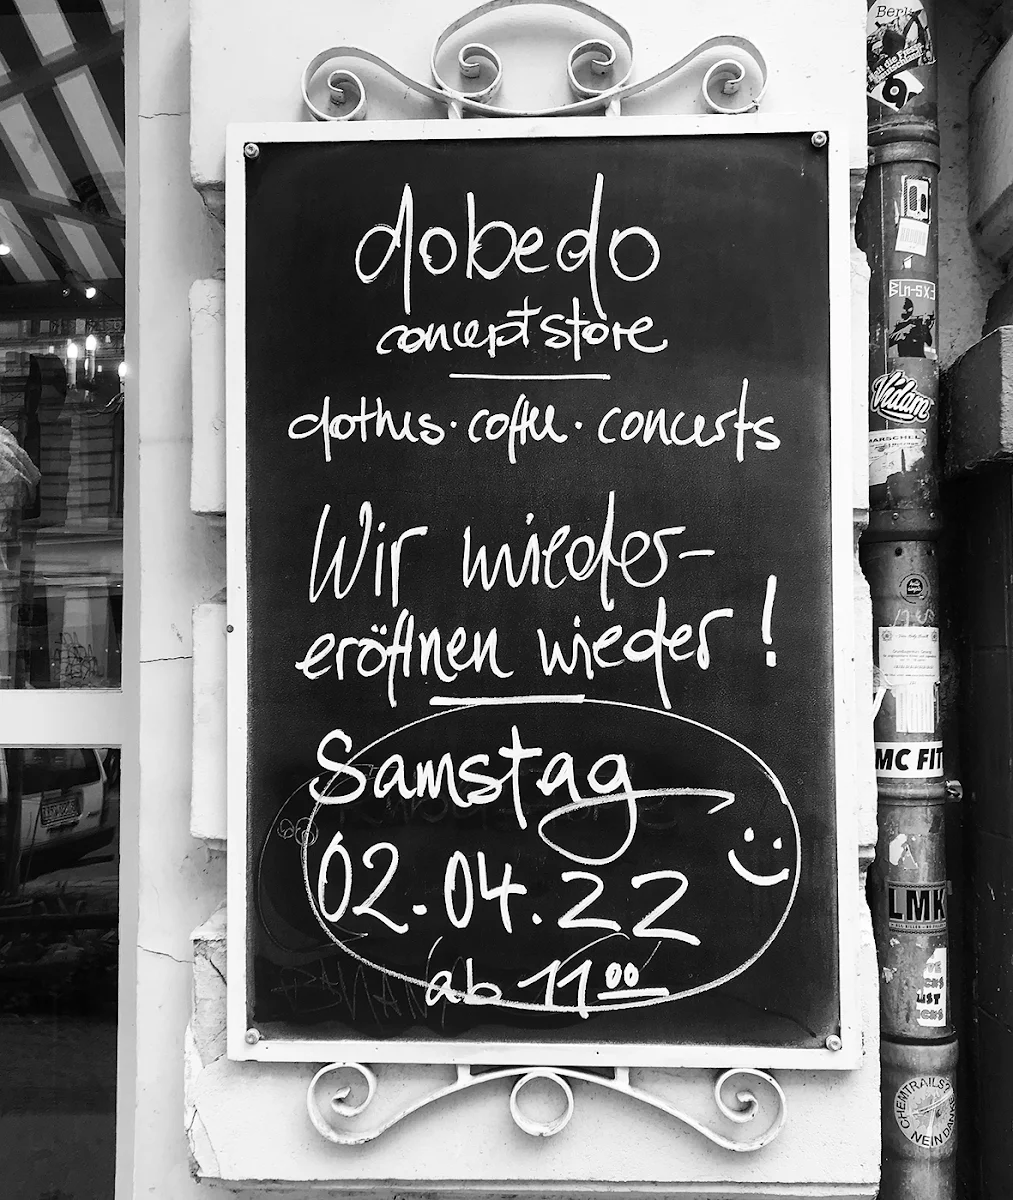 dobedo
conceptstore
clothes · coffee · concerts
Wir wieder-
eröffnen wieder!
Samstag
02.04.22
ab 11 00
Berlin
Bln-SX3
Vidam
MARSCHEL
MC FIT
LMK
LIST
CHEMTRAILS?
NEIN DANKE